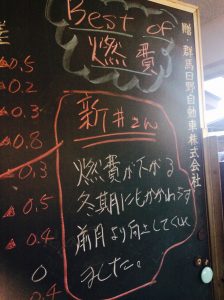 Best of
燃費
贈・群馬日野自動車株式会社
新井さん
燃費が下がる
冬期にもかかわらず
前月より向上してくれ
ました。
△0.5
△0.2
△0.3
△0.8
0.3
0.5
0.4
0
0.4